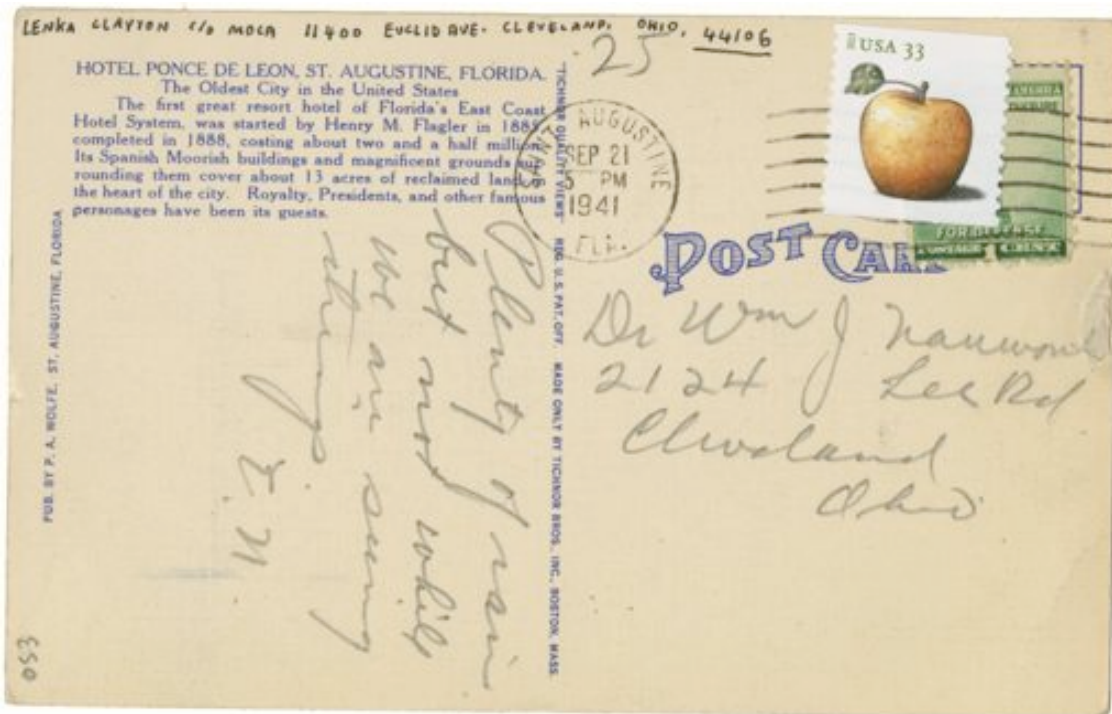 LENKA CLAYTON c/o MOCA 11400 EUCLID AVE. CLEVELAND, OHIO, 44106
25
HOTEL PONCE DE LEON, ST. AUGUSTINE, FLORIDA.
The Oldest City in the United States
The first great resort hotel of Florida's East Coast
Hotel System, was started by Henry M. Flagler in 1885
completed in 1888, costing about two and a half million.
Its Spanish Moorish buildings and magnificent grounds sur-
rounding them cover about 13 acres of reclaimed land in
the heart of the city. Royalty, Presidents, and other famous
personages have been its guests.
Plenty of rain
but not while
we are seeing
things
E. N
PUB. BY P. A. WOLFE, ST. AUGUSTINE, FLORIDA
053
"TICHNOR QUALITY VIEWS" REG. U. S. PAT. OFF. MADE ONLY BY TICHNOR BROS. INC., BOSTON, MASS.
SAINT AUGUSTINE
SEP 21
5 PM
1941
FLA.
USA 33
FOR DEFENSE
POST CARD
Dr Wm J
2124 Lee Rd
Cleveland
Ohio